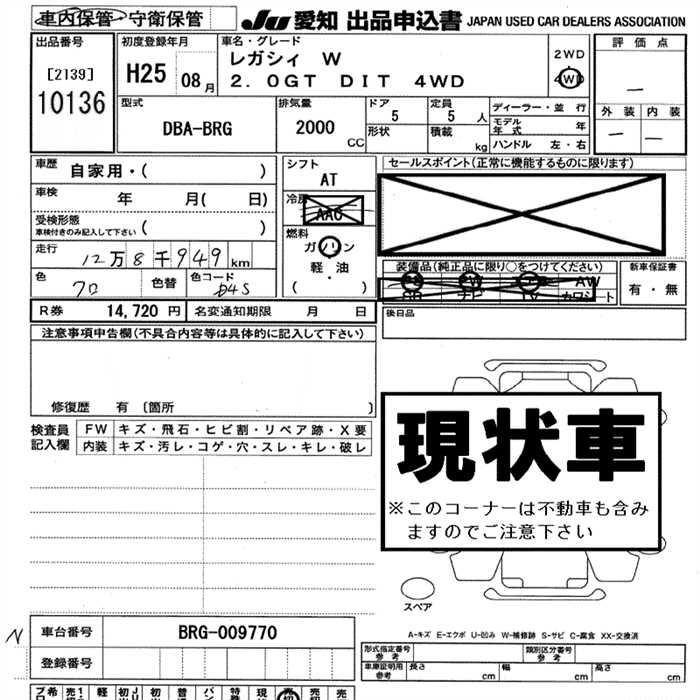 車内保管・守衛保管 JU 愛知 出品申込書 JAPAN USED CAR DEALERS ASSOCIATION
出品番号 初度登録年月 車名・グレード 評価点
[2139] H25 08月 レガシィ W 2WD
10136 2.0GT DIT 4WD 4WD
外装 内装
型式 排気量 ドア 定員 ディーラー・並行
DBA-BRG 2000CC 5 5人 モデル年式 年
形状 積載 kg ハンドル 左・右
車歴 自家用・( ) シフト セールスポイント(正常に機能するものに限ります)
AT
車検 年 月( 日) 冷房
AAC
受検形態 ( ) 燃料
車検付きのみ記入して下さい ガソリン
走行 12万8千949km 軽・油
( )
装備品(純正品に限り○をつけてください) 新車保証書
色 クロ 色替 色コード D4S AW 有・無
ナビ TV カワシート
R券 14,720円 名変通知期限 月 日 後日品
注意事項申告欄(不具合内容等は具体的に記入して下さい)
修復歴 有 〔箇所 〕
現状車
※このコーナーは不動車も含み
ますのでご注意下さい
検査員記入欄 FW キズ・飛石・ヒビ割・リペア跡・X要
内装 キズ・汚レ・コゲ・穴・スレ・キレ・破レ
スペア
N 車台番号 BRG-009770
A-キズ E-エクボ U-凹み W-補修跡 S-サビ C-腐食 XX-交換済
登録番号
形式指定番号 参考 類別区分番号 参考
車庫証明用 参考 長さ cm 幅 cm 高さ cm